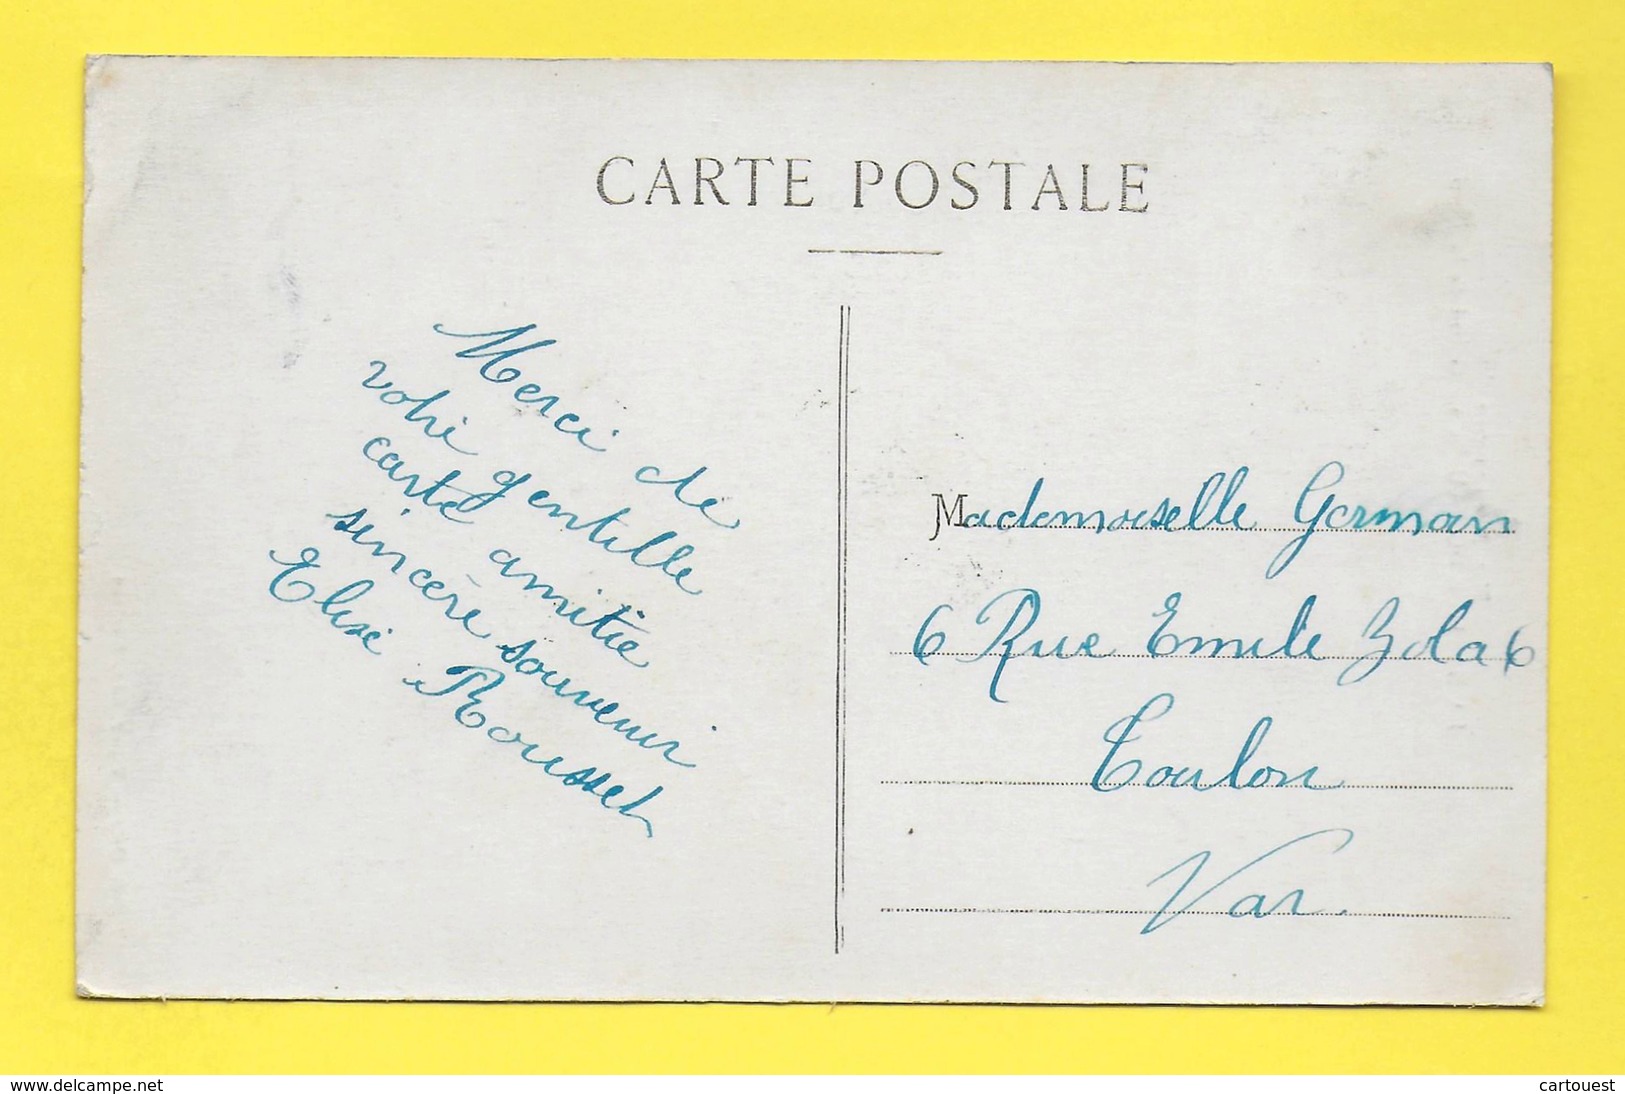 CARTE POSTALE
Merci de
votre gentille
carte amitié
sincère souvenir
Elise Rousset
Mademoiselle Germain
6 Rue Emile Zola 6
Toulon
Var.
www.delcampe.net
cartouest